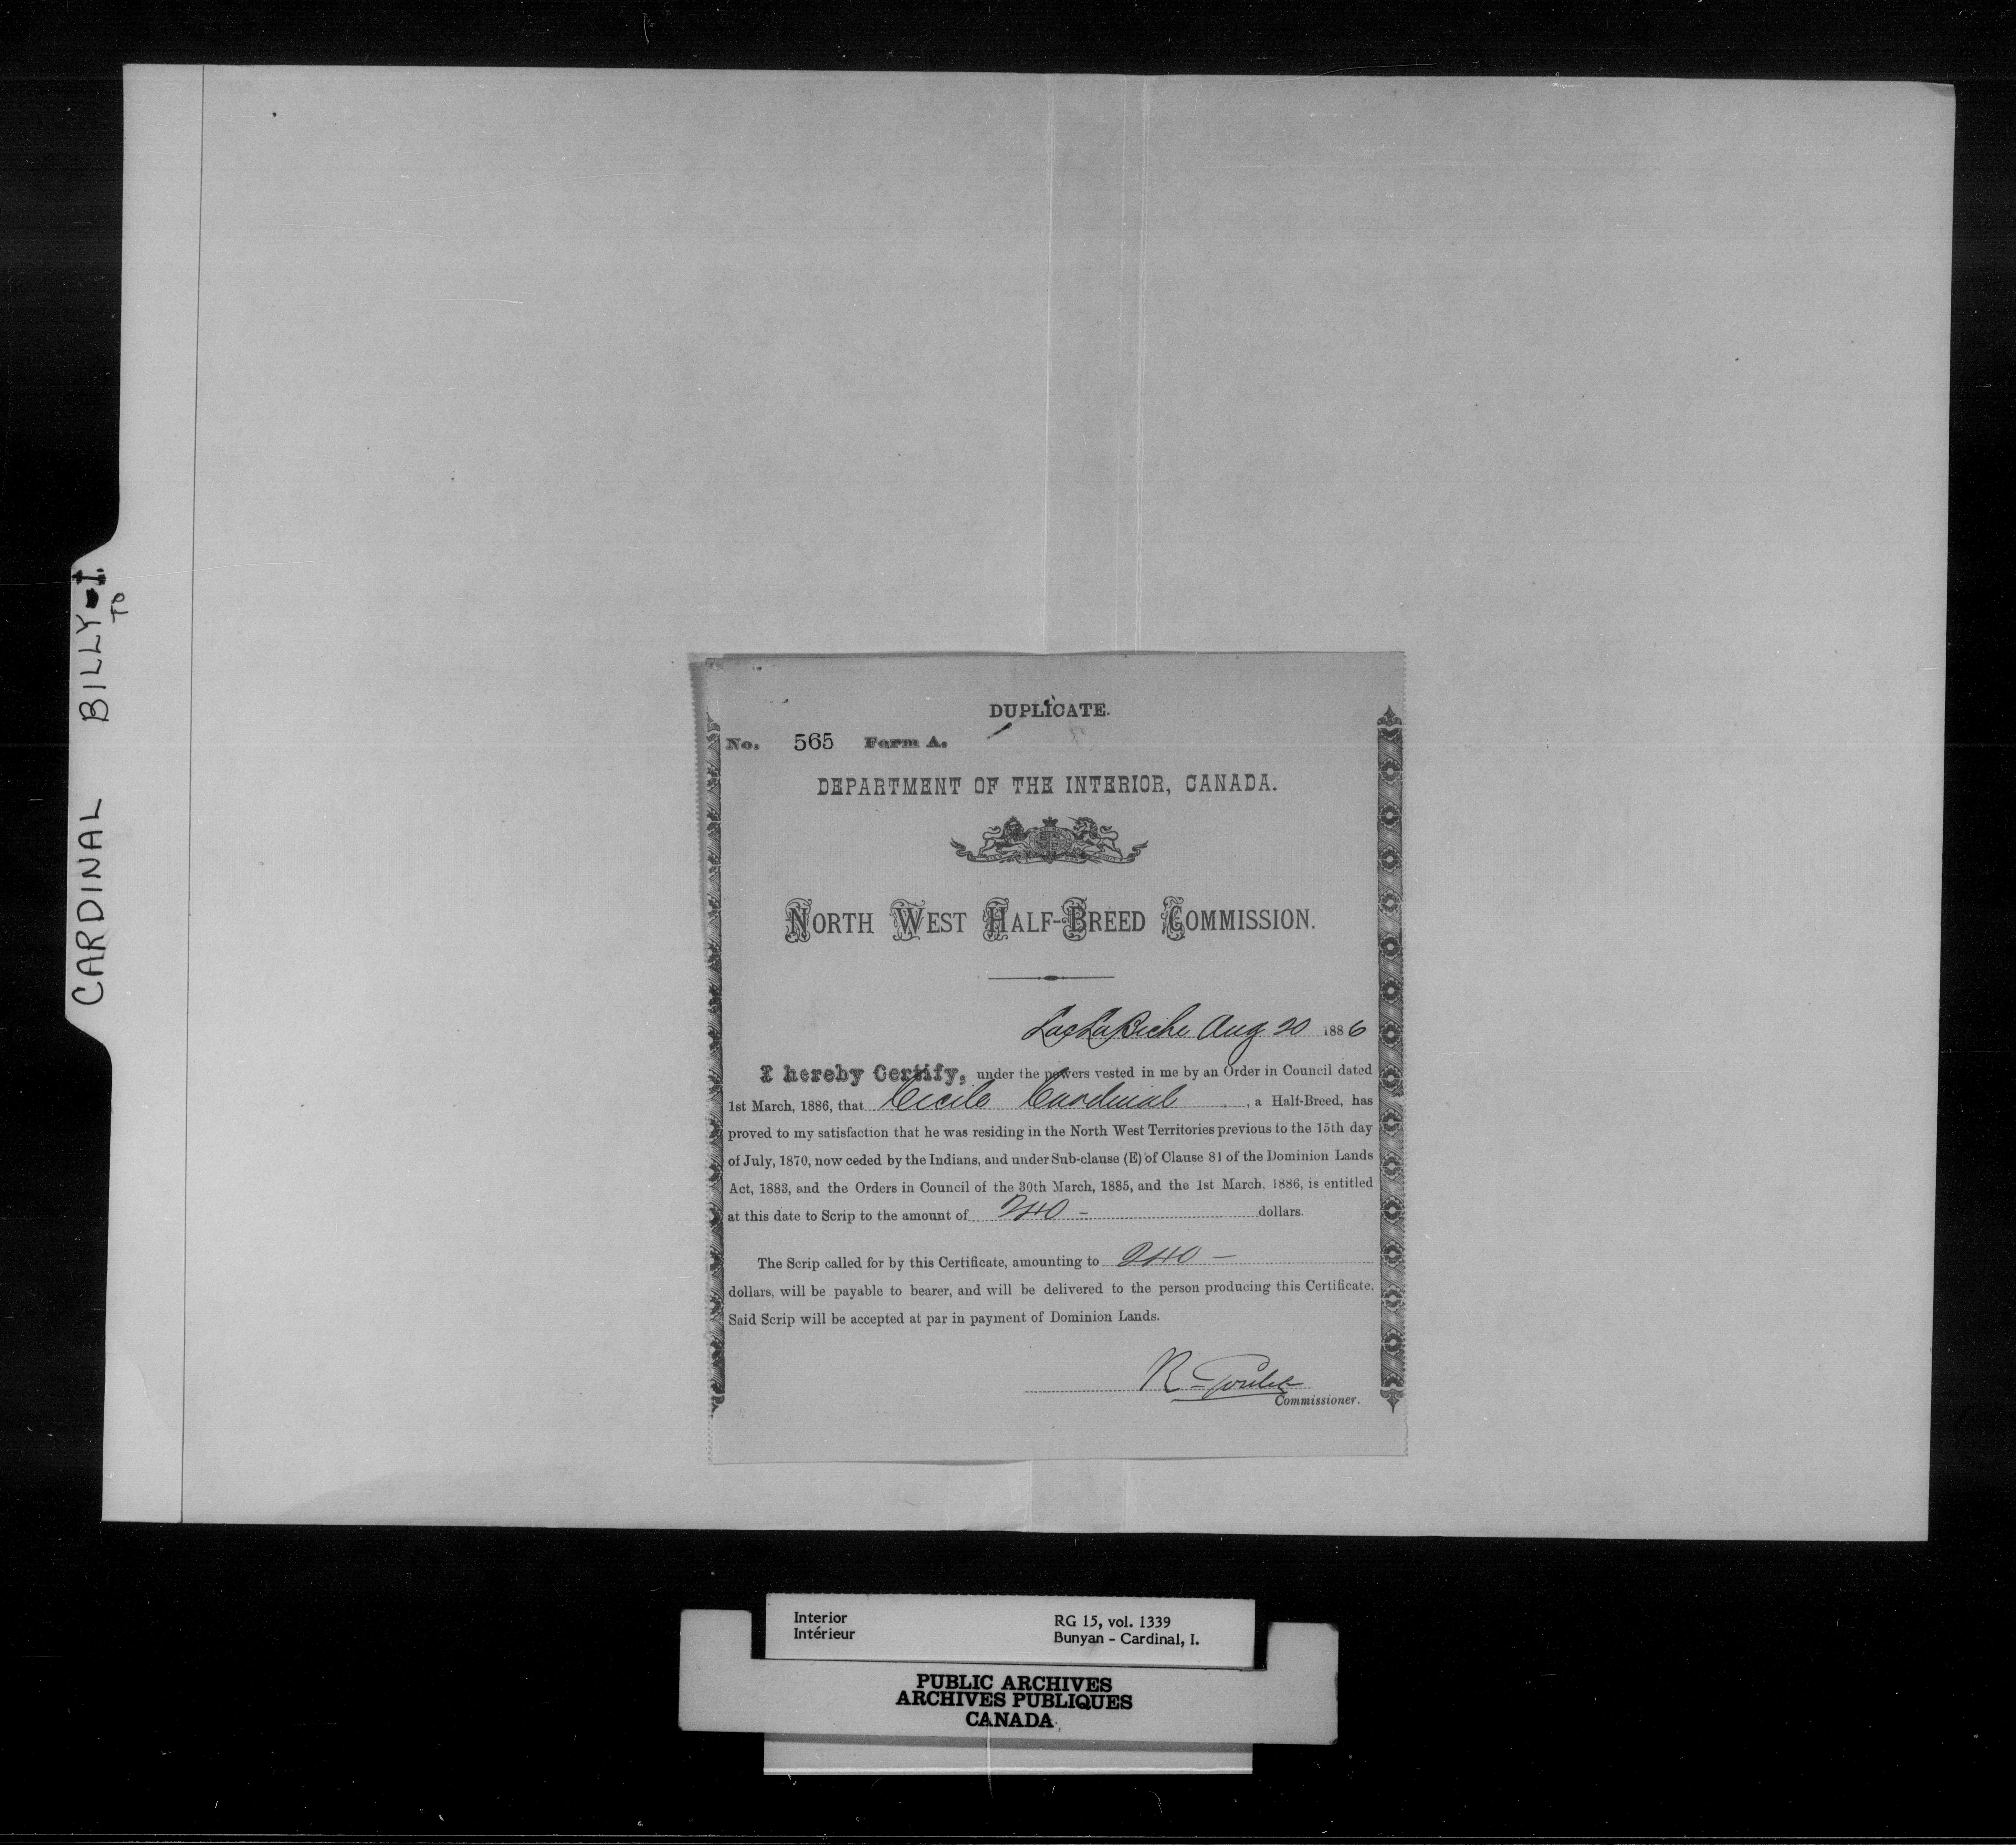 CARDINAL BILLY - I.
TO
DUPLICATE.
No. 565 Form A.
DEPARTMENT OF THE INTERIOR, CANADA.
NORTH WEST HALF-BREED COMMISSION.
Lac La Biche Aug 20 1886
I hereby Certify, under the powers vested in me by an Order in Council dated
1st March, 1886, that Cecile Cardinal, a Half-Breed, has
proved to my satisfaction that he was residing in the North West Territories previous to the 15th day
of July, 1870, now ceded by the Indians, and under Sub-clause (E) of Clause 81 of the Dominion Lands
Act, 1883, and the Orders in Council of the 30th March, 1885, and the 1st March, 1886, is entitled
at this date to Scrip to the amount of 240 - dollars.
The Scrip called for by this Certificate, amounting to 240 -
dollars, will be payable to bearer, and will be delivered to the person producing this Certificate.
Said Scrip will be accepted at par in payment of Dominion Lands.
R Goulet
Commissioner.
Interior
Intérieur
RG 15, vol. 1339
Bunyan - Cardinal, I.
PUBLIC ARCHIVES
ARCHIVES PUBLIQUES
CANADA